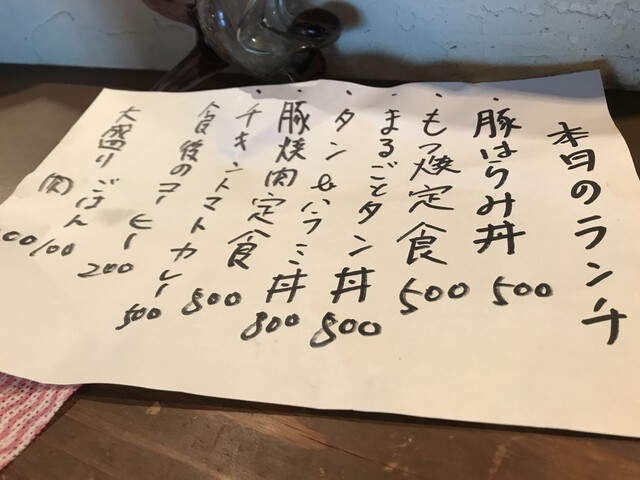 本日のランチ
・豚はらみ丼 500
・もつ焼定食 500
・まるごとタン丼 800
・タン&ハラミ丼 800
・豚焼肉定食 800
・チキントマトカレー 500
食後のコーヒー 200
大盛り ごはん 100
肉